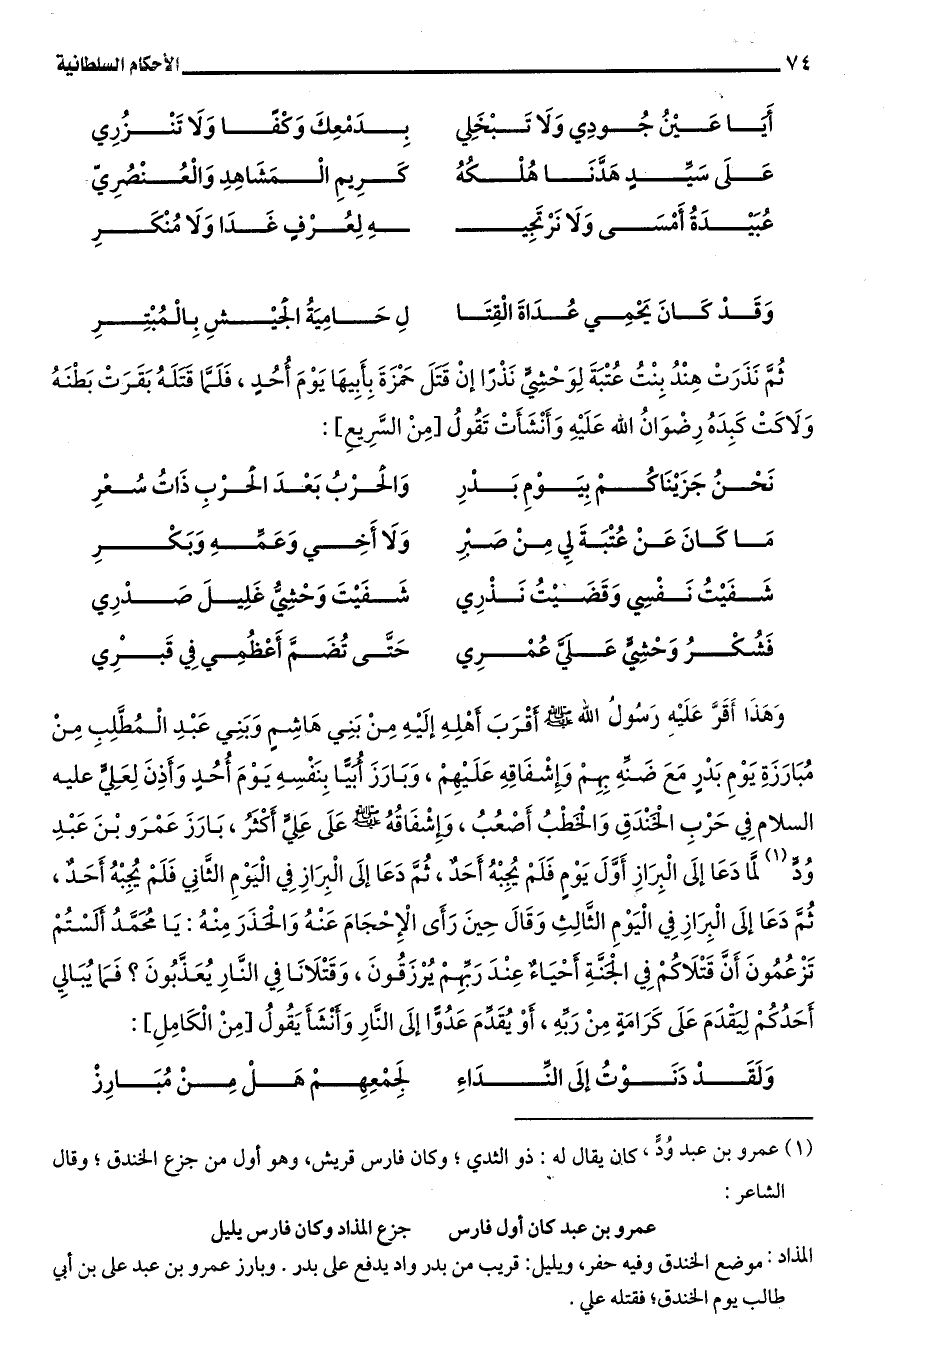 ٧٤ الأحكام السلطانية
أَيَا عَيْنُ جُودِي وَلَا تَبْخَلِي بِدَمْعِكَ وَكْفًا وَلَا تَنْزُرِي
عَلَى سَيِّدٍ هَدَّنَا هُلْكُهُ كَرِيمِ الْمَشَاهِدِ وَالْعُنْصُرِيّ
عُبَيْدَةُ أَمْسَى وَلَا نَرْتَجِيـ ـهِ لِعُرْفٍ غَدَا وَلَا مُنْكَرِ
وَقَدْ كَانَ يَحْمِي عُدَاةَ الْقِتَا لِ حَامِيَةُ الْجَيْشِ بِالْمُبْتِرِ
ثُمَّ نَذَرَتْ هِنْدُ بِنْتُ عُتْبَةَ لِوَحْشِيٍّ نَذْرًا إِنْ قَتَلَ حَمْزَةَ بِأَبِيهَا يَوْمَ أُحُدٍ ، فَلَمَّا قَتَلَهُ بَقَرَتْ بَطْنَهُ
وَلَاكَتْ كَبِدَهُ رِضْوَانُ الله عَلَيْهِ وَأَنْشَأَتْ تَقُولُ [مِنْ السَّرِيعِ] :
نَحْنُ جَزَيْنَاكُمْ بِيَوْمِ بَدْرِ وَالْحَرْبُ بَعْدَ الْحَرْبِ ذَاتُ سُعْرِ
مَا كَانَ عَنْ عُتْبَةَ لِي مِنْ صَبْرِ وَلَا أَخِي وَعَمِّهِ وَبَكْرِ
شَفَيْتُ نَفْسِي وَقَضَيْتُ نَذْرِي شَفَيْتَ وَحْشِيُّ غَلِيلَ صَدْرِي
فَشُكْرُ وَحْشِيٍّ عَلَيَّ عُمْرِي حَتَّى تُضَمَّ أَعْظُمِي فِي قَبْرِي
وَهَذَا أَقَرَّ عَلَيْهِ رَسُولُ الله ﷺ أَقْرَبَ أَهْلِهِ إِلَيْهِ مِنْ بَنِي هَاشِمٍ وَبَنِي عَبْدِ الْمُطَّلِبِ مِنْ
مُبَارَزَةِ يَوْمِ بَدْرٍ مَعَ ضَنِّهِ بِهِمْ وَإِشْفَاقِهِ عَلَيْهِمْ ، وَبَارَزَ أُبَيًّا بِنَفْسِهِ يَوْمَ أُحُدٍ وَأَذِنَ لِعَلِيٍّ عليه
السلام فِي حَرْبِ الْخَنْدَقِ وَالْخَطْبُ أَصْعَبُ ، وَإِشْفَاقُهُ ﷺ عَلَى عَلِيٍّ أَكْثَرُ ، بَارَزَ عَمْرَو بْنَ عَبْدِ
وُدٍّ (١) لَمَّا دَعَا إِلَى الْبِرَازِ أَوَّلَ يَوْمٍ فَلَمْ يُجِبْهُ أَحَدٌ ، ثُمَّ دَعَا إِلَى الْبِرَازِ فِي الْيَوْمِ الثَّانِي فَلَمْ يُجِبْهُ أَحَدٌ ،
ثُمَّ دَعَا إِلَى الْبِرَازِ فِي الْيَوْمِ الثَّالِثِ وَقَالَ حِينَ رَأَى الْإِحْجَامَ عَنْهُ وَالْحَذَرَ مِنْهُ : يَا مُحَمَّدُ أَلَسْتُمْ
تَزْعُمُونَ أَنَّ قَتْلَاكُمْ فِي الْجَنَّةِ أَحْيَاءٌ عِنْدَ رَبِّهِمْ يُرْزَقُونَ ، وَقَتْلَانَا فِي النَّارِ يُعَذَّبُونَ ؟ فَمَا يُبَالِي
أَحَدُكُمْ لِيَقْدَمَ عَلَى كَرَامَةٍ مِنْ رَبِّهِ ، أَوْ يُقَدِّمَ عَدُوًّا إِلَى النَّارِ وَأَنْشَأَ يَقُولُ [مِنْ الْكَامِلِ] :
وَلَقَدْ دَنَوْتُ إِلَى النِّدَاءِ لِجَمْعِهِمْ هَلْ مِنْ مُبَارِزْ
(١) عمرو بن عبد وُدٍّ ، كان يقال له : ذو الثدي ؛ وكان فارس قريش، وهو أول من جزع الخندق ؛ وقال
الشاعر :
عمرو بن عبد كان أول فارس جزع المذاد وكان فارس يليل
المذاد : موضع الخندق وفيه حفر، ويليل: قريب من بدر واد يدفع على بدر . وبارز عمرو بن عبد على بن أبي
طالب يوم الخندق؛ فقتله علي .